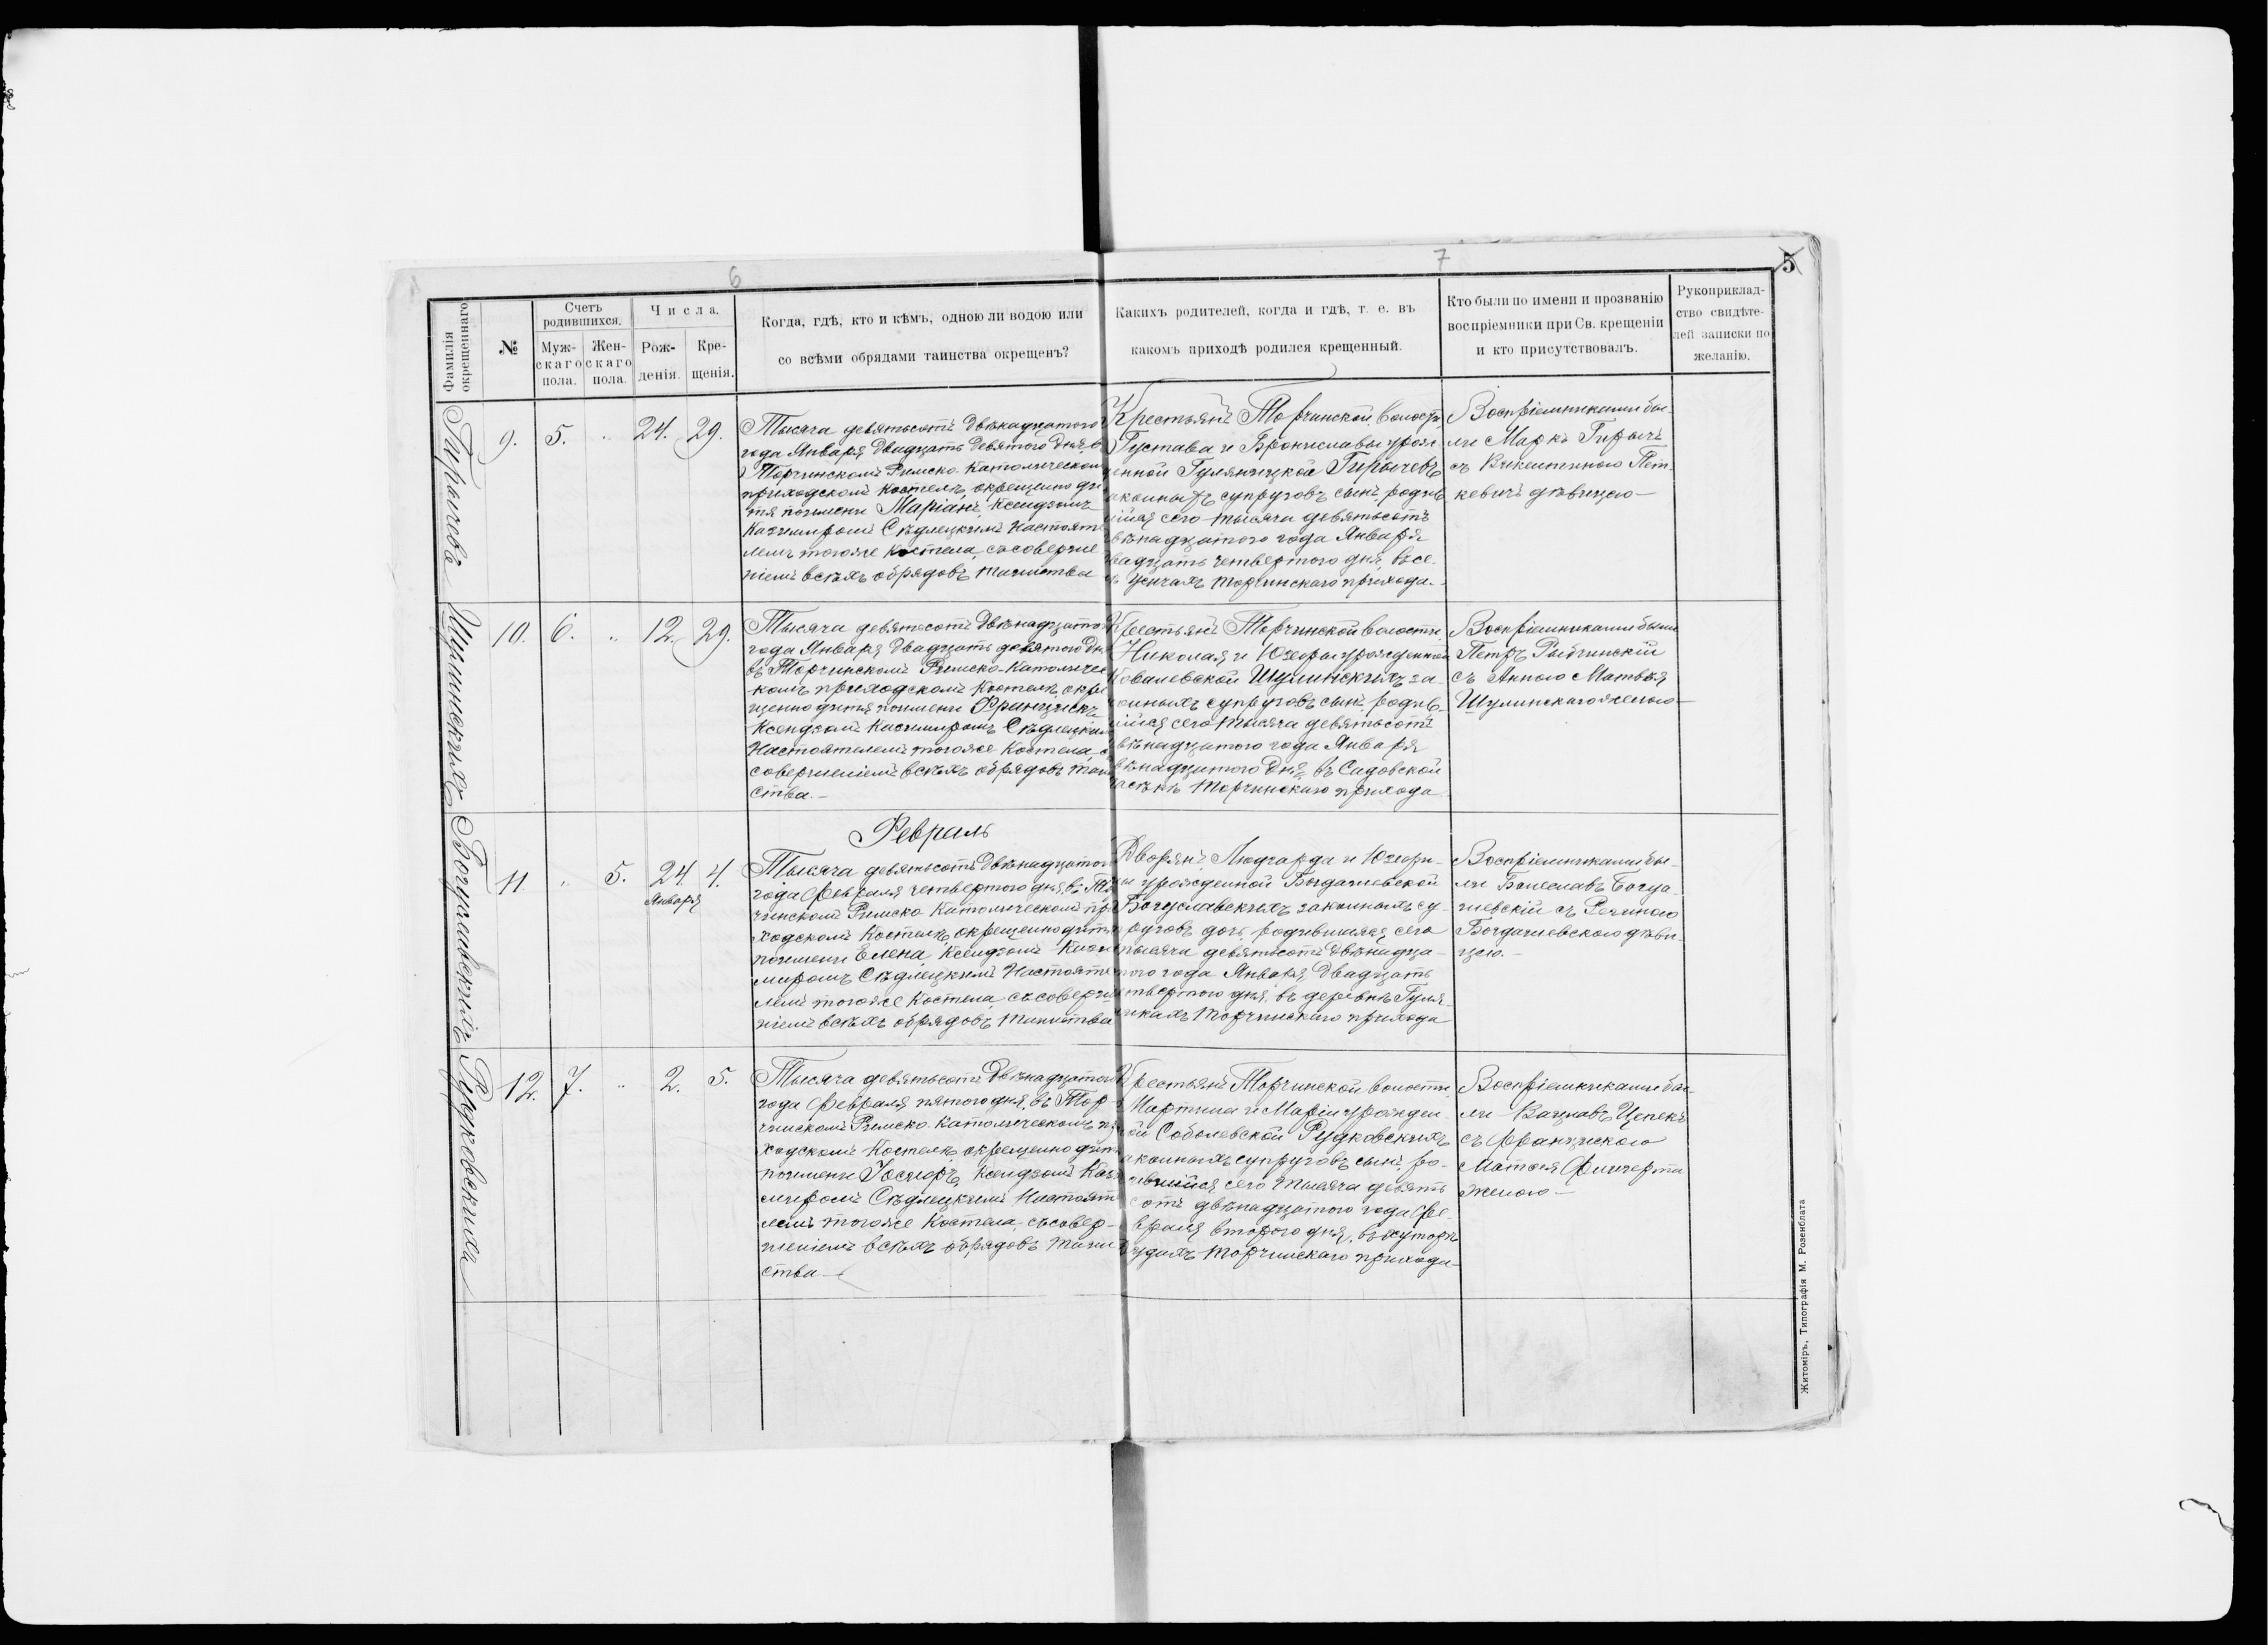 6
7
5
Фамилія
окрещеннаго
№
Счетъ
родившихся.
Муж-
скаго
пола.
Жен-
скаго
пола.
Числа.
Рож-
денія.
Кре-
щенія.
Когда, гдѣ, кто и кѣмъ, одною ли водою или
со всѣми обрядами таинства окрещенъ?
Какихъ родителей, когда и гдѣ, т. е. въ
какомъ приходѣ родился крещенный.
Кто были по имени и прозванію
воспріемники при Св. крещеніи
и кто присутствовалъ.
Рукоприклад-
ство свидѣте-
лей записки по
желанію.
Гирычовъ
9.
5.
24.
29.
Тысяча девятьсотъ двѣнадцатого
года Января двадцать девятого дня, в
Торчинскомъ Римско-Католическом
приходскомъ Костелѣ, окрещено ди
тя по имени Маріанъ, Ксендзомъ
Казимиромъ Сѣдлецкимъ Настояте
лемъ тогоже Костела, съ соверше
ніемъ всѣхъ обрядовъ таинства
Крестьянъ Торчинской волости,
Густава и Брониславы урож
енной Гуляницкой Гирычевъ
аконныхъ супруговъ сынъ, родив
шійся сего тысяча девятьсотъ
вѣнадцатого года Января
вадцать четвертого дня, въ се
Усичахъ Торчинскаго прихода.
Воспріемниками бы-
ли Маркъ Гирычъ
съ Викентиною Пет-
кевичъ дѣвицею—
Шулинскихъ
10.
6.
12.
29.
Тысяча девятьсотъ двѣнадцато
года Января двадцать девятого дн
въ Торчинскомъ Римско-Католичес
комъ приходскомъ Костелѣ, окре
щено дитя по имени Францискъ,
Ксендзомъ Казимиромъ Сѣдлецким
Настоятелемъ тогоже Костела, с
совершеніемъ всѣхъ обрядовъ таин
ства.—
Крестьянъ Торчинской волости,
Николая и Юзефы урожденной
Ковалевской Шулинскихъ за-
онныхъ супруговъ сынъ, родив-
шійся сего тысяча девятьсотъ
вѣнадцатого года Января
вѣнадцатого дня, въ Садовской
асѣкѣ Торчинскаго прихода
Воспріемниками были
Петръ Рыбчинскій
съ Анною Матвѣя
Шулинскаго женою—
Богуславскихъ
Февраль
11
5.
24
Января
4.
Тысяча девятьсотъ двѣнадцатог
года Февраля четвертого дня, въ Тор
чинскомъ Римско-Католическомъ пр
ходскомъ Костелѣ, окрещено дитя
по имени Елена, Ксендзомъ Кази
миромъ Сѣдлецкимъ Настояте
лемъ тогоже Костела, съ соверше
ніемъ всѣхъ обрядовъ таинства
Дворянъ Людгарда и Юзефи-
ны урожденной Богдашевской
Богуславскихъ законныхъ су-
руговъ дочь, родившаяся сего
тысяча девятьсотъ двѣнадца-
того года Января двадцать
твертого дня, въ деревнѣ Гуля-
никахъ Торчинскаго прихода
Воспріемниками бы-
ли Болеславъ Богда-
шевскій съ Региною
Богдашевскою дѣви-
цею.—
Рудковскихъ
12.
7.
2.
5.
Тысяча девятьсотъ двѣнадцатого
года Февраля пятого дня, въ Тор-
чинскомъ Римско-Католическомъ пр
ходскомъ Костелѣ, окрещено дит
по имени Іосифъ, Ксендзомъ Каз
миромъ Сѣдлецкимъ Настояте
лемъ тогоже Костела, съ совер-
шеніемъ всѣхъ обрядовъ таин
ства—
Крестьянъ Торчинской волости,
Мартина и Маріи урожден-
ой Соболевской Рудковскихъ
аконныхъ супруговъ сынъ, ро-
ившійся сего тысяча девять
сотъ двѣнадцатого года Фе-
враля второго дня, въ хуторѣ
Торчинскаго прихода—
Воспріемниками бы-
ли Вацлавъ Цепекъ
съ Францискою
женою—
Житоміръ, Типографія М. Розенблата